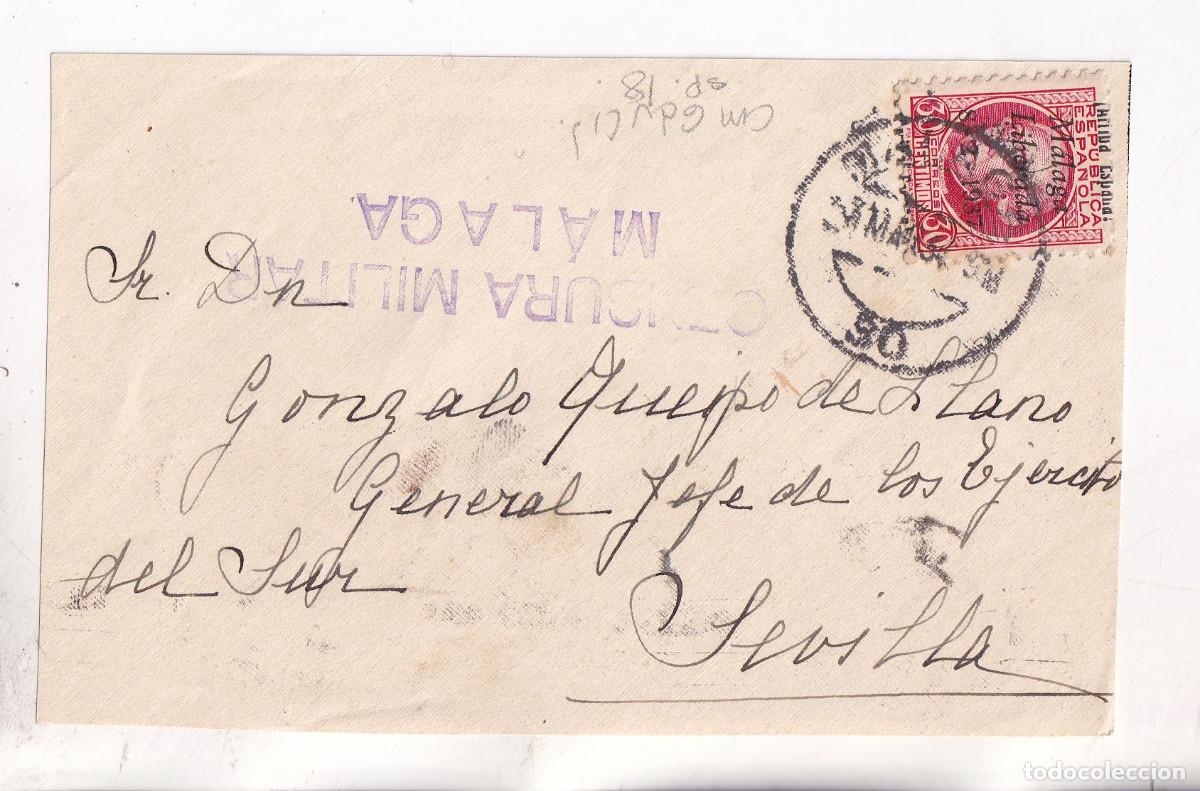 Sr. Dn
Gonzalo Queipo de Llano
General Jefe de los Ejercito
del Sur
Sevilla
CENSURA MILITAR
MÁLAGA
sp. 18
REPUBLICA
ESPAÑOLA
CORREOS
30 CENTIMOS 30
¡Arriba España!
Malaga
Liberada
8-2-1937
todocoleccion